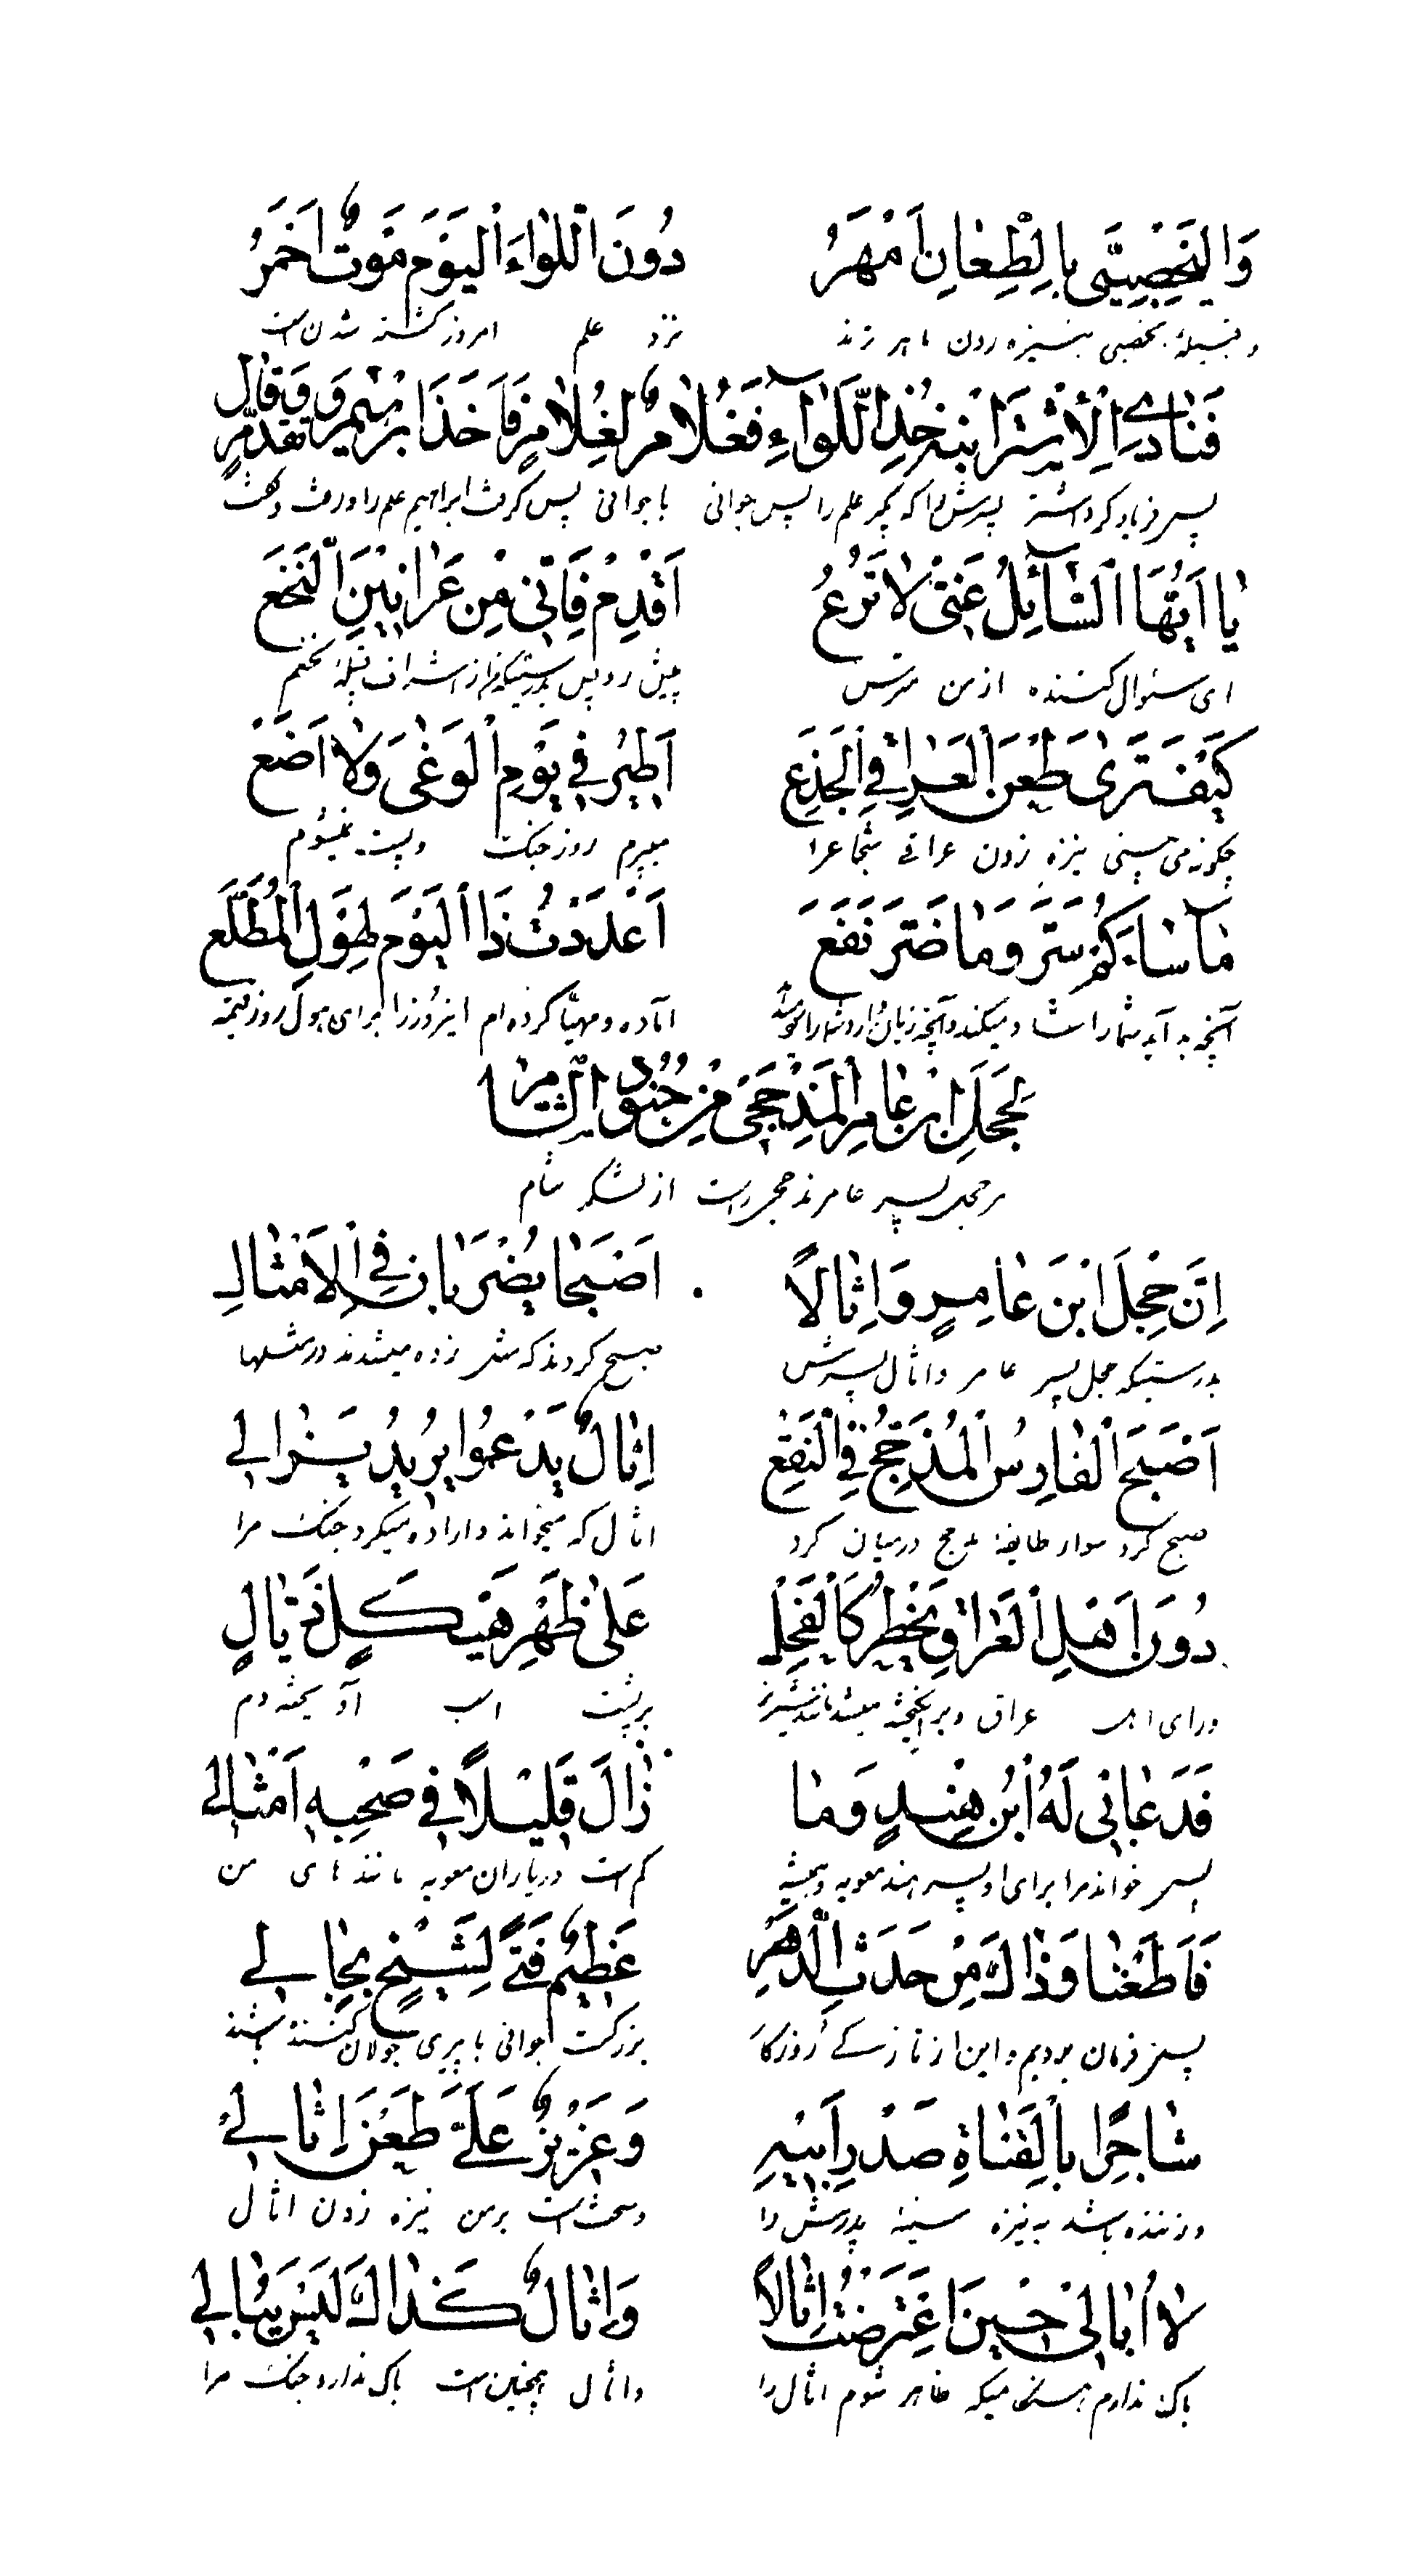 وَالْيَحْصِبِيّى بِالطِّعٰانِ اَمْهَرُ دُونَ اللّوٰاءَ الْيَوْمَ مَوْتٌ اَحْمَرُ
و قبیلهٔ یحصبی بنیزه زدن ماهر ترند نزد علم امروز کشته شدن است
فَنٰادَى الْاَشْتَرَ ابْنَهُ خُذِ اللّوٰآءِ فَغُلٰامٌ لِغُلٰامٍ فَاَخَذَ اِبْرٰهيمَ وَ قٰالَ
پس فریاد کرد اشتر پسرش را که بگیر علم را پس جوانی با جوانی پس گرفت ابراهیم علم را و رفت و گفت
يٰا اَيُّهَا السّٰآئِلُ عَنّى لٰا تُرَعْ اَقْدِمْ فَاِنّى مِنْ عَرٰانِيْنَ النَّخَعْ
ای سئوال کننده از من مترس پیش رو پس بدرستیکه من از اشراف قبیلهٔ نخعم
كَيْفَ تَرىٰ طَعْنَ الْعَرٰاقِى الْجَذَعِ اَطيرُ فى يَوْمِ الْوَغىٰ وَ لٰا اَضَعْ
چگونه می بینی نیزه زدن عراقی شجاع را میپرم روز جنگ و پست نمیشوم
مٰا سٰاءَكُمْ سَرَّ وَ مٰا ضَرَّ نَفَعَ اَعْدَدْتُ ذَا الْيَوْمَ لِهَوْلِ الْمُطَّلَعِ
آنچه بد آید شما را شاد میکند و آنچه زیان دارد شما را آماده و مهیّا کرده ام اینروز را برای هول روز
لِحَجْلِ ابْنِ عٰامِرِ الْمَذْحِجى مِنْ جُنُودِ الشّٰامِ
مر حجل پسر عامر مذحجی راست از لشکر شام
اِنَّ حِجْلَ ابْنَ عٰامِرٍ وَ اِثٰالاً اَصْبَحٰا يُضْرَبٰانِ فِى الْاَمْثٰالِ
بدرستیکه حجل پسر عامر و اثال پسرش صبح کردند که مثل زده میشدند در مثلها
اَصْبَحَ الْفٰارِسُ الْمُذَحِّجُ فِى النَّقْعِ اِثٰالٌ يَدْعُوا يُرِيدُ نِزٰالى
صبح کرد سوار طایفهٔ مذحج در میان گرد اثال که میخواند و اراده میکرد جنگ مرا
دُونَ اَهْلِ الْعَرٰاقِ يَخْطِرُ كَالْفَحْلِ عَلىٰ ظَهْرِ هَيْكَلٍ ذَيّٰالٍ
ورای اهل عراق و بر انگیخته میشد مانند شیر نر بر پشت اسب آویخته دم
فَدَعٰانى لَهُ ابْنُ هِنْدٍ وَ مٰا زٰالَ قَليْلاً فى صَحْبِهِ اَمْثٰالى
پس خواند مرا برای او پسر هند معویه و همیشه کم است در یاران معویه مانندهای من
فَاَطَعْنٰا وَ ذٰاكَ مِنْ حَدَثِ الدَّهْرِ عَظيْمٌ فَتىً لِشَيْخٍ بِجٰالى
پس فرمان بردیم و این از تازگی روزگار بزرگست جوانی با پیری جولان کننده باشند
شٰاجِراً بِالْقَنٰاةِ صَدْرَ اَبيهِ وَ عَزيْزٌ عَلَىَّ طَعْنَ اِثٰالى
و زننده باشد به نیزه سینهٔ پدرش را و سخت است بر من نیزه زدن اثال
لٰا اُبٰالى حيْنَ اعْتَرَضْتُ اِثٰالاً وَ اِثٰالٌ كَذٰاكَ لَيْسَ يُبٰالى
باک ندارم هنگامیکه ظاهر شوم اثال را و اثال همچنین است باک ندارد جنگ مرا